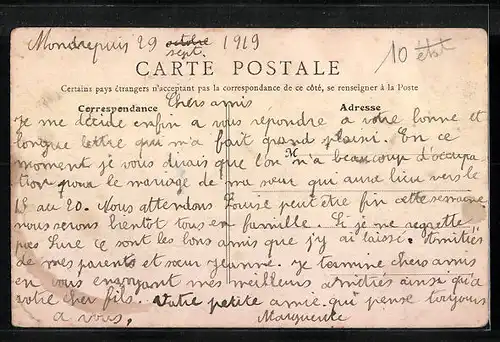 Mondrepuis 29 octobre 1919
sept.
10
CARTE POSTALE
Certains pays étrangers n'acceptant pas la correspondance de ce côté, se renseigner à la Poste
Correspondance
Adresse
Chers amis
Je me décide enfin a vous répondre a votre bonne et
longue lettre qui m'a fait grand plaisir. En ce
M
moment je vous dirais que l'on n'a beaucoup d'occupa
tion pour le mariage de ma sœur qui aura lieu vers le
15 au 20. Nous attendons Louise peut être fin cette semaine
nous serons bientot tous en famille. Si je ne regrette
pas ce sont les bons amis que j'y ai laissé. Amitiés
de mes parents et sœur Jeanne. Je termine chers amis
en vous envoyant mes meilleurs amitiés ainsi qu'a
votre cher fils. Votre petite amie qui pense toujours
a vous,
Marguerite